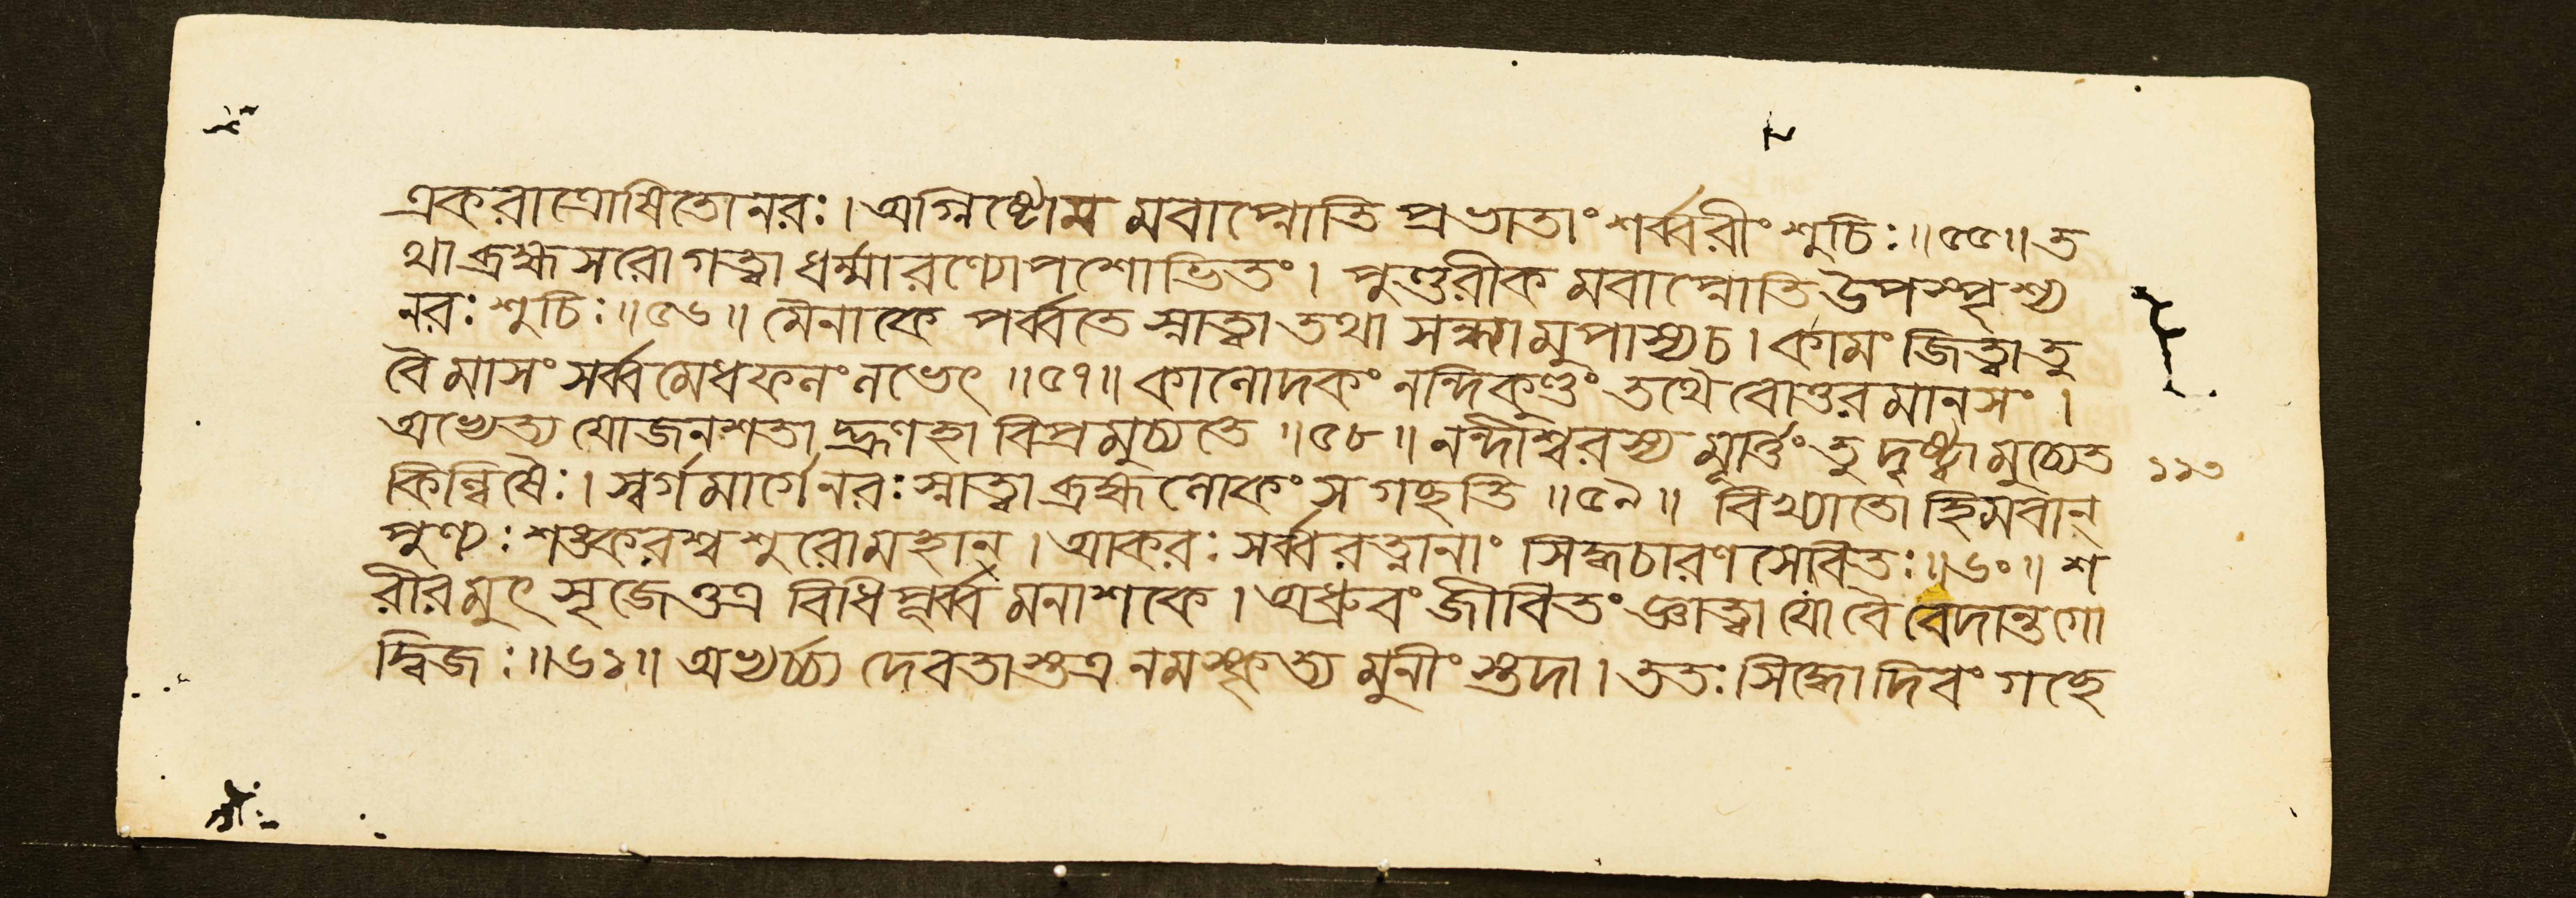 একরাত্রোষিতোনরঃ। অগ্নিষ্টোম মবাপ্নোতি প্রভাতাং শর্ব্বরীং শুচিঃ॥৫৫॥ ত
থাব্রহ্মসরোগত্বা ধর্ম্মারণ্যোপশোভিতং। পুণ্ডরীক মবাপ্নোতি উপস্পৃশ্য
নরঃ শুচিঃ॥৫৬॥ মৈনাকে পর্ব্বতে স্নাত্বা তথা সন্ধ্যামুপাস্যচ। কামং জিত্বা তু
বৈ মাসং সর্ব্বমেধফলং লভেৎ ॥৫৭॥ কালোদকং নন্দিকুণ্ডং তথৈবোত্তরমানসং।
অভ্যেত্য যোজনশতাদ্ভ্রূণহা বিপ্রমুচ্যতে ॥৫৮॥ নন্দীশ্বরস্য মূর্ত্তিং তু দৃষ্ট্বা মুচ্যেত
কিল্বিষৈঃ। স্বর্গমার্গে নরঃ স্নাত্বা ব্রহ্মলোকং স গচ্ছতি ॥৫৯॥ বিখ্যাতো হিমবান্
পুণ্যঃ শঙ্করশ্বশুরোমহান্। আকরঃ সর্ব্বরত্নানাং সিদ্ধচারণসেবিতঃ॥৬০॥ শ
রীরমুৎসৃজেত্তত্র বিধিপূর্ব্ব মনাশকে। অধ্রুবং জীবিতং জ্ঞাত্বা যো বৈ বেদান্তগো
দ্বিজঃ॥৬১॥ অভ্যর্চ্য দেবতাস্তত্র নমস্কৃত্য মুনীংস্তদা। ততঃ সিদ্ধোদিবং গচ্ছে
১১৩